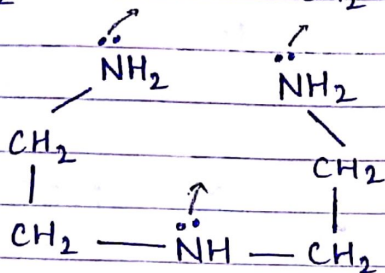 NH₂ NH₂
CH₂ CH₂
CH₂ — NH — CH₂